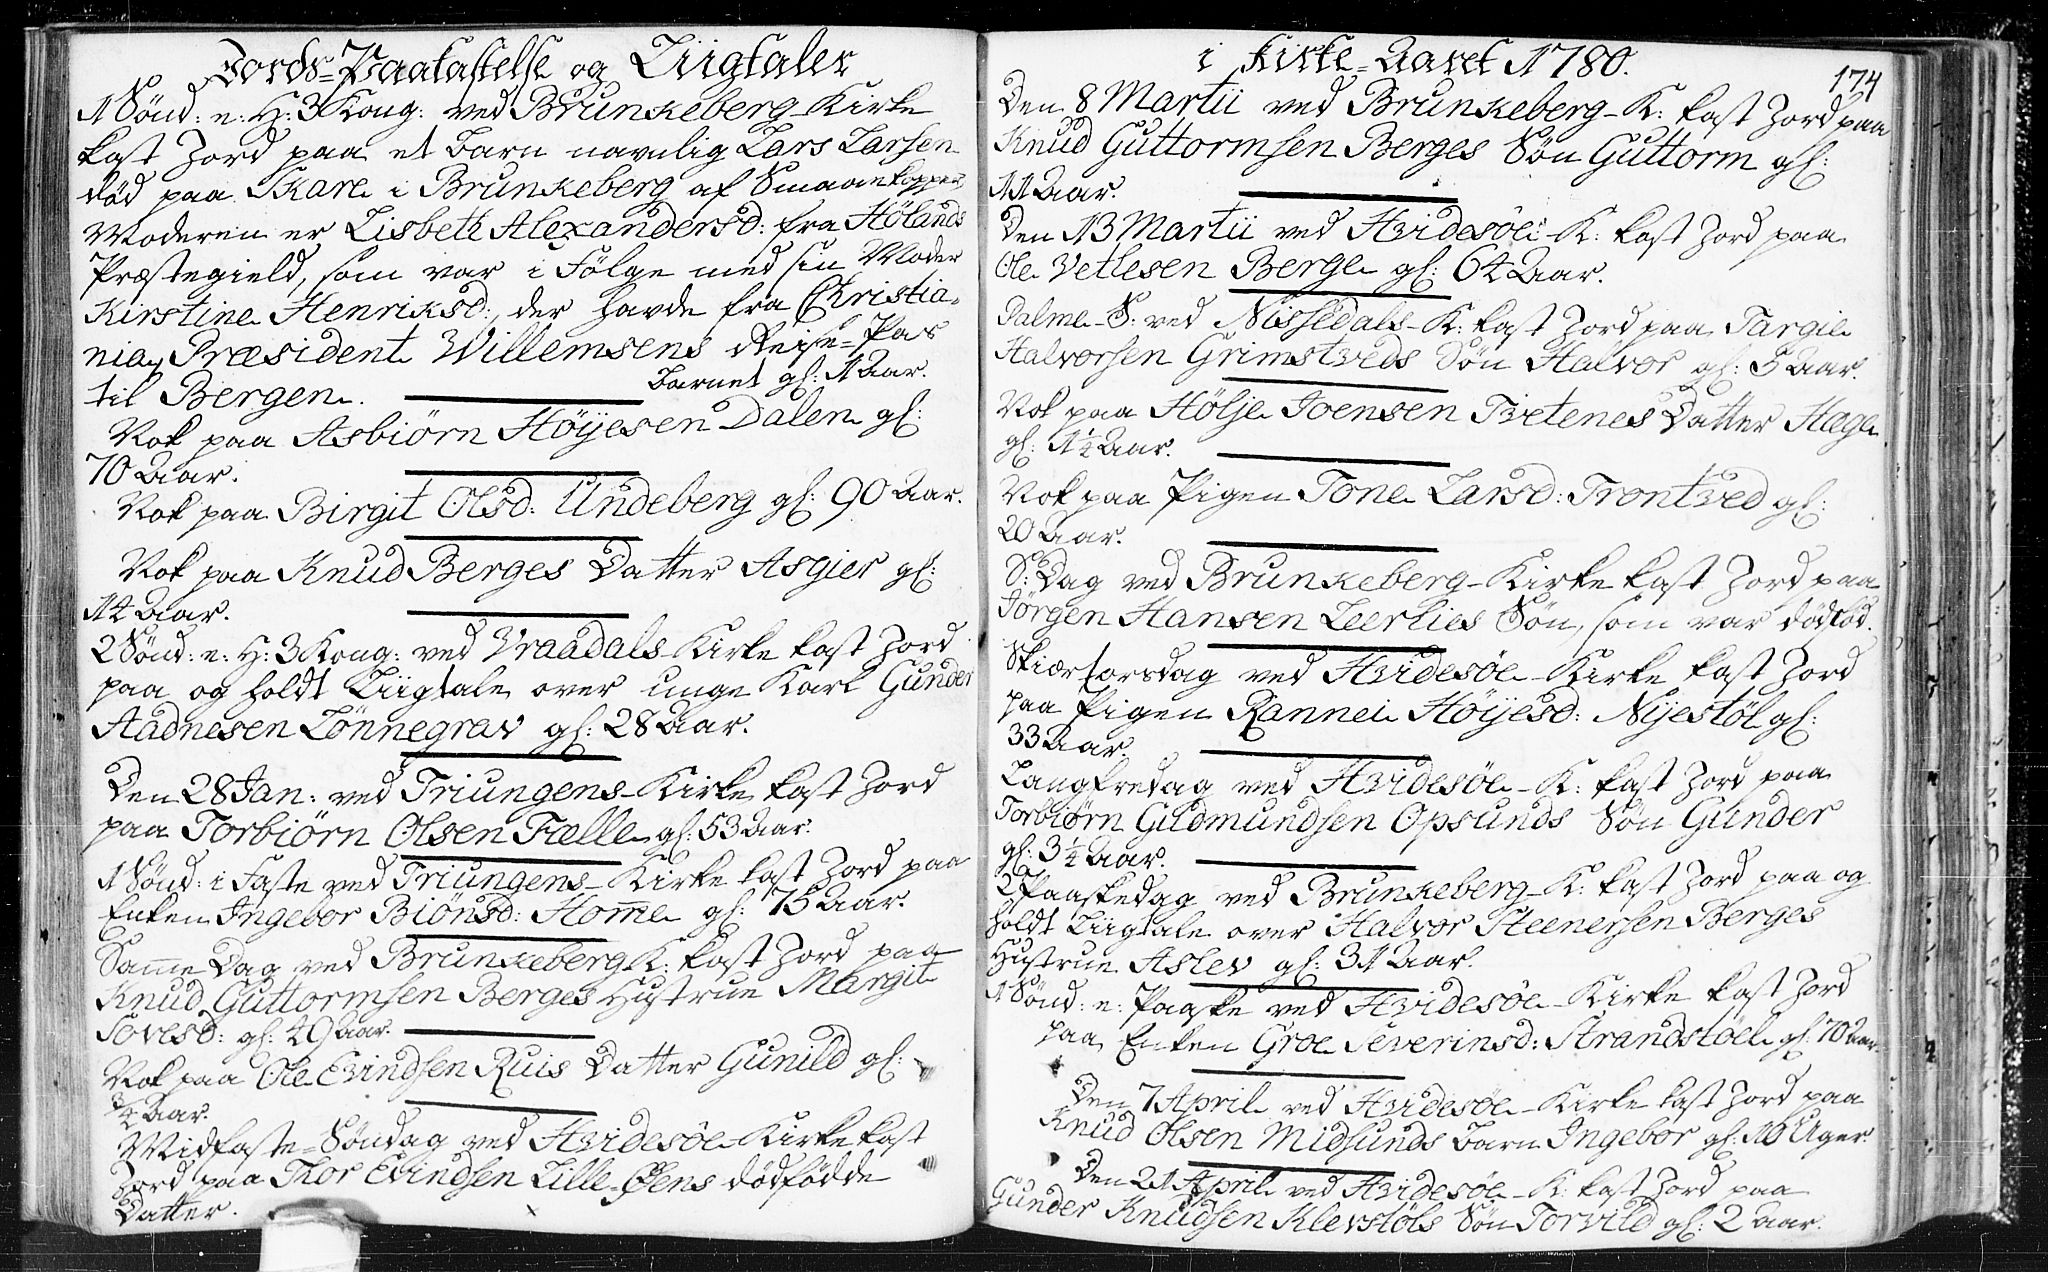 Jords-Paakastelse og Liigtaler
1 Sønd: e: H: 3 Kong: ved Brunkeberg-Kirke
kast Jord paa et Barn navnlig Lars Larsen
død paa Skare i Brunkeberg af Smaaekopper
Moderen er Lisbeth Alexandersd: fra Hølands
Præstegield, som var i Følge med sin Moder
Kirstine Henriksd:, der havde fra Christia-
nia, Præsident Willemsens Reise-Pas
til Bergen. Barnet gl: 1 Aar.
Nok paa Asbiørn Høyesen Dalen gl:
70 Aar.
Nok paa Birgit Olsd: Undeberg gl: 90 Aar.
Nok paa Knud Berges Datter Asgier gl:
14 Aar.
2 Sønd: e: H: 3 Kong: ved Vraadals-Kirke kast Jord
paa og holdt Liigtale over unge Karl Gunder
Aadnesen Lønnegrav gl: 28 Aar.
Den 28 Jan: ved Triungens-Kirke kast Jord
paa Torbiørn Olsen Fælle gl: 53 Aar.
1 Sønd: i Faste ved Triungens-Kirke kast Jord paa
Enken Ingebor Biønsd: Home gl: 75 Aar.
Same Dag ved Brunkeberg K: kast Jord paa
Knud Guttormsen Berges Hustrue Margit
Sovesd: gl: 49 Aar.
Nok paa Ole Evindsen Ruis Datter Gunild gl:
3/4 Aar.
Midfaste-Søndag ved Hvidesøe-Kirke kast
Jord paa Thor Evindsen Lille-Øens dødfødde
Datter.
i Kirke-Aaret 1780.
174
Den 8 Martii ved Brunkeberg-K: kast Jord paa
Knud Guttormsen Berges Søn Guttorm gl:
11 Aar.
Den 13 Martii ved Hvidesøe-K: kast Jord paa
Ole Vetlesen Berge gl: 64 Aar.
Palme-S: ved Nissedals-K: kast Jord paa Targie
Halvorsen Grimstveds Søn Halvor gl: 5 Aar.
Nok paa Hølje Joensen Tvetenes Datter Hæge
gl: 1 1/4 Aar.
Nok paa Pigen Tone Larsd: Trontved gl:
20 Aar.
S: Dag ved Brunkeberg-Kirke kast Jord paa
Jørgen Hansen Leerlies Søn, som var dødfød.
Skiærtorsdag ved Hvidesøe-Kirke kast Jord
paa Pigen Rannei Høyesd: Nyestøl gl:
33 Aar.
Langfredag ved Hvidesøe-K: kast Jord paa
Torbiørn Gudmundsen Opsunds Søn Gunder
gl: 3 1/4 Aar.
2 Paaskedag ved Brunkeberg-K: kast Jord paa og
holdt Liigtale over Halvor Steenersen Berges
Hustrue Aslev gl: 31 Aar.
1 Sønd: e: Paaske ved Hvidesøe-Kirke kast Jord
paa Enken Groe Severinsd: Strandstøel gl: 70 Aar.
Den 7 April ved Hvidesøe-Kirke kast Jord paa
Knud Olsen Midsunds Barn Ingebor gl: 16 Uger.
Den 21 April ved Hvidesøe-K: kast Jord paa
Gunder Knudsen Klevstøls Søn Torvild gl: 2 Aar.